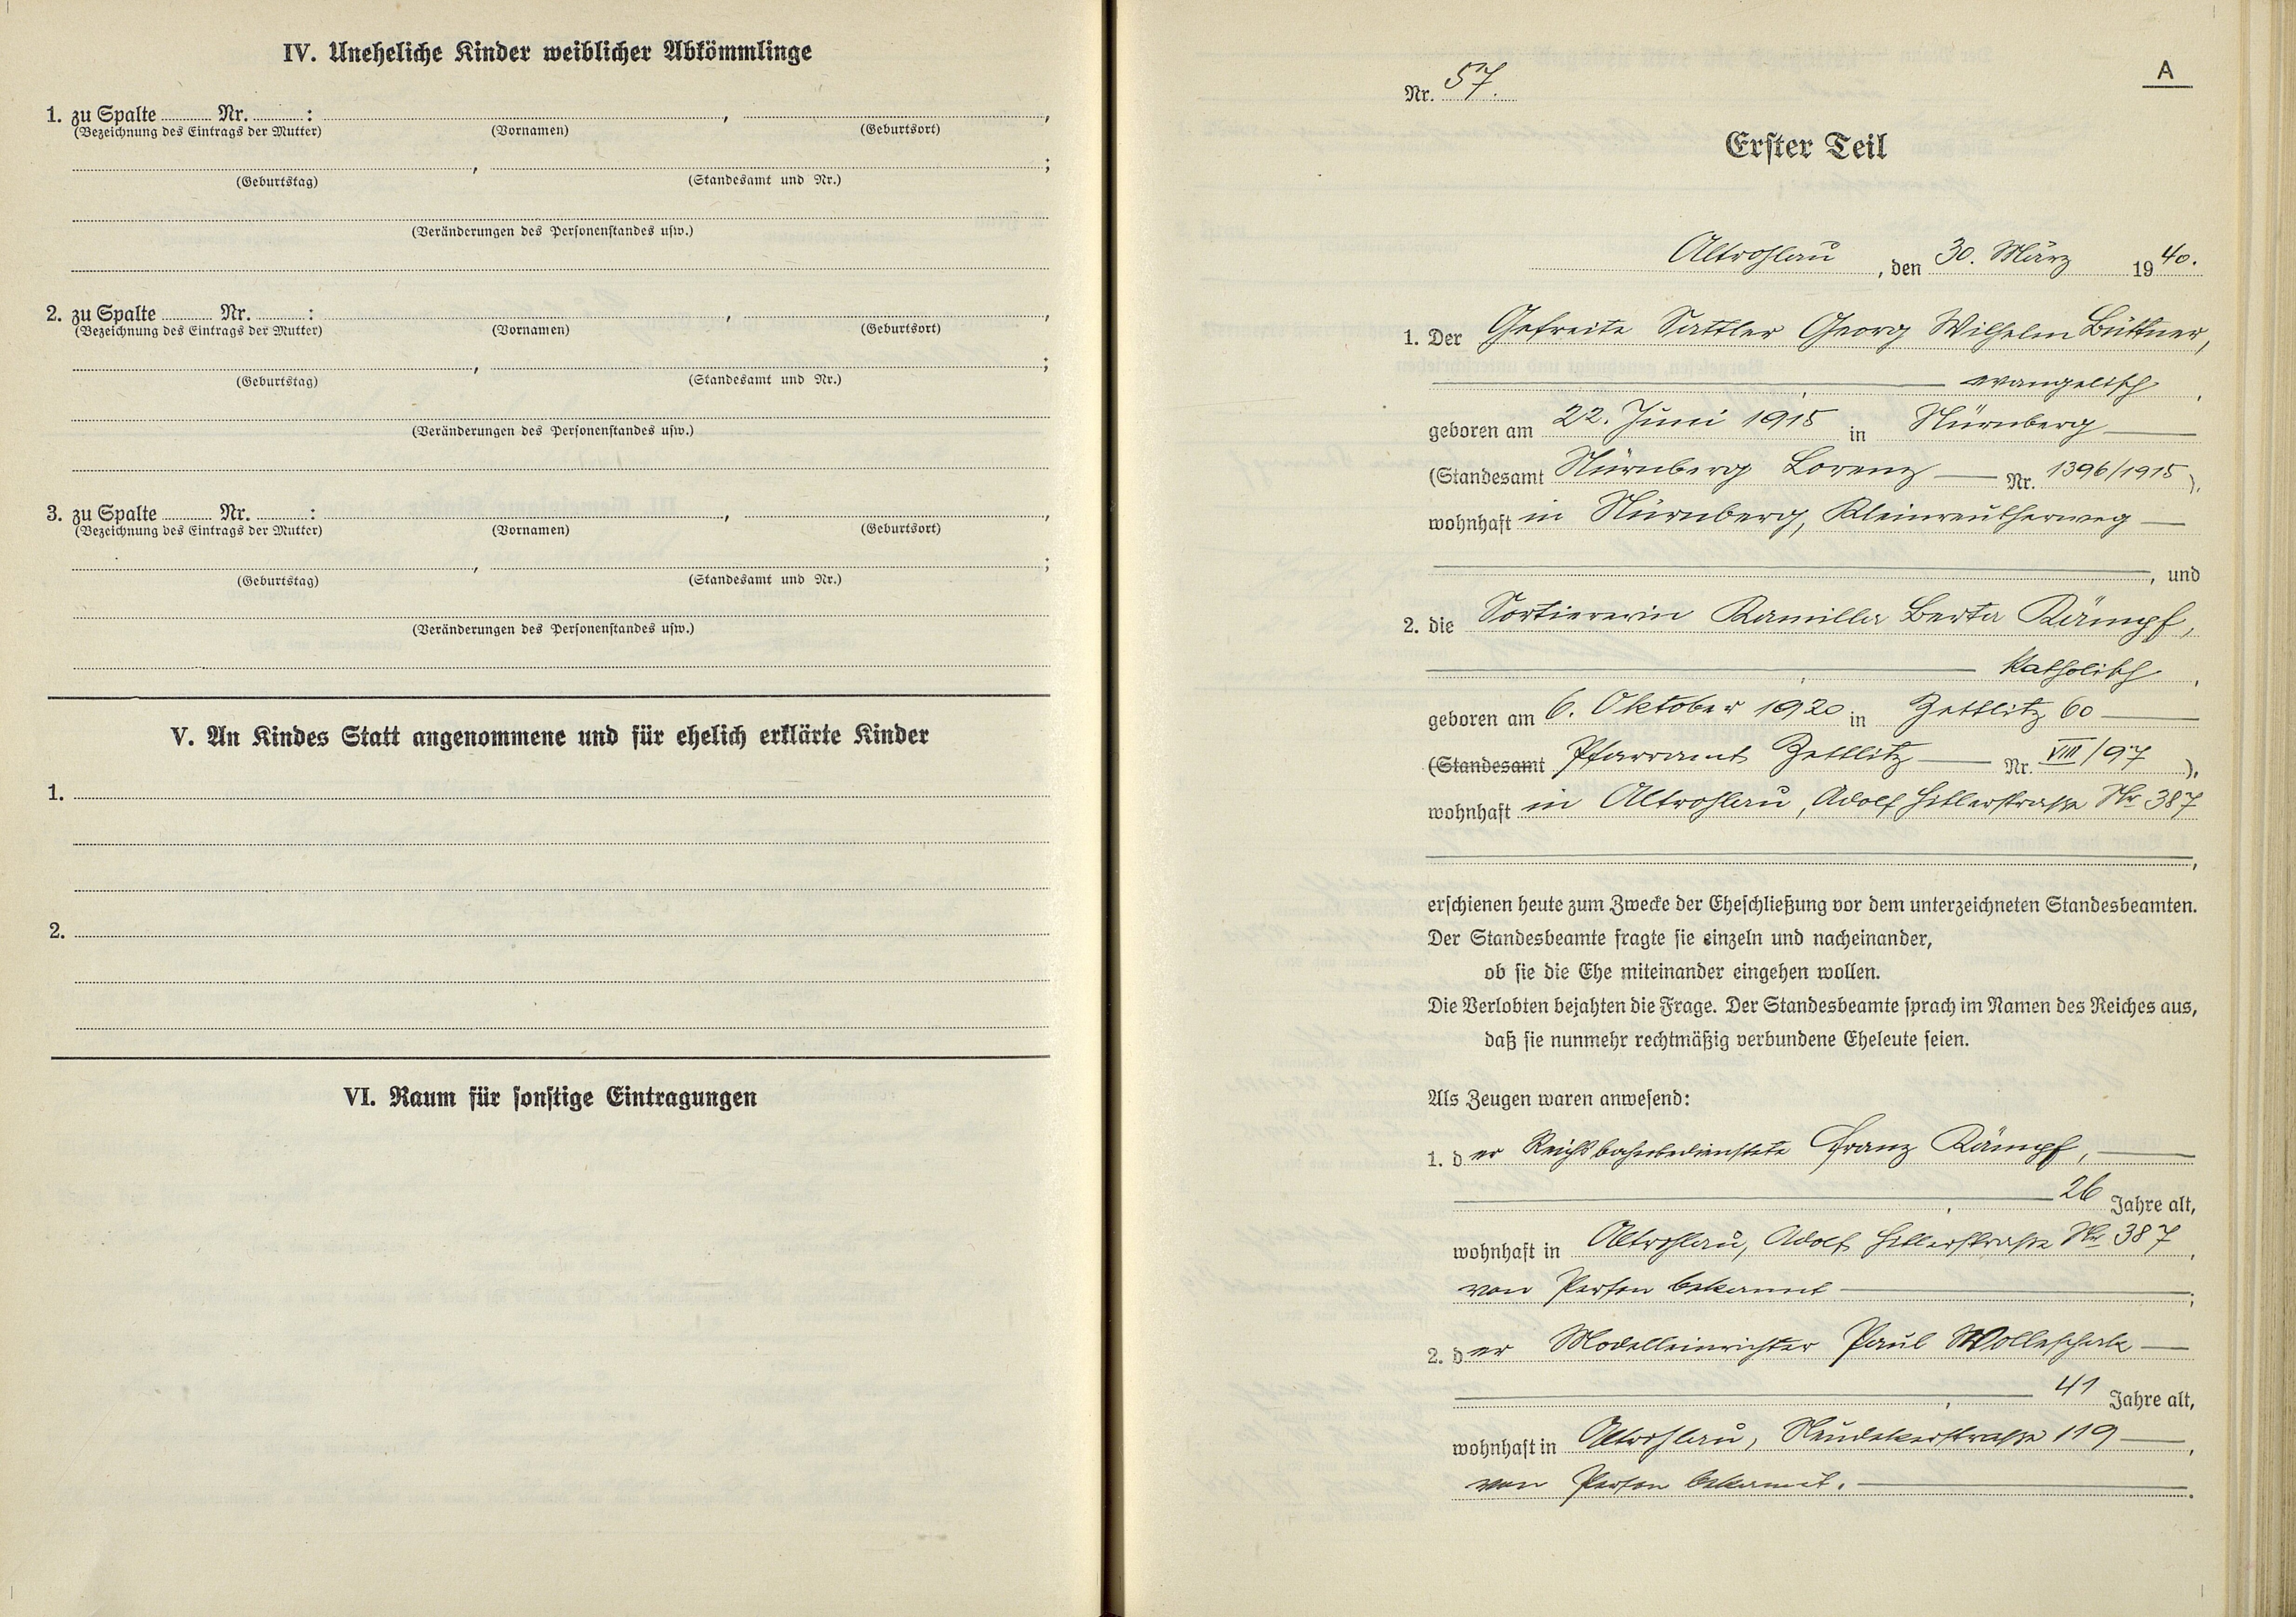 IV. Uneheliche Kinder weiblicher Abkömmlinge
1. zu Spalte Nr. : , ,
(Bezeichnung des Eintrags der Mutter) (Vornamen) (Geburtsort)
, ;
(Geburtstag) (Standesamt und Nr.)
(Veränderungen des Personenstandes usw.)
2. zu Spalte Nr. : , ,
(Bezeichnung des Eintrags der Mutter) (Vornamen) (Geburtsort)
, ;
(Geburtstag) (Standesamt und Nr.)
(Veränderungen des Personenstandes usw.)
3. zu Spalte Nr. : , ,
(Bezeichnung des Eintrags der Mutter) (Vornamen) (Geburtsort)
, ;
(Geburtstag) (Standesamt und Nr.)
(Veränderungen des Personenstandes usw.)
V. An Kindes Statt angenommene und für ehelich erklärte Kinder
1.
2.
VI. Raum für sonstige Eintragungen
A
Nr. 57.
Erster Teil
Altrohlau, den 30. März 1940.
1. Der Gefreite Sattler Georg Wilhelm Büttner,
evangelisch,
geboren am 22. Juni 1915 in Nürnberg
(Standesamt Nürnberg Lorenz Nr. 1396/1915),
wohnhaft in Nürnberg, Kleinreutherweg
, und
2. die Sortiererin Kamilla Berta Kämpf,
katholisch,
geboren am 6. Oktober 1920 in Zettlitz 60
(Standesamt Pfarramt Zettlitz Nr. VIII/97),
wohnhaft in Altrohlau, Adolf Hitlerstraße Nr 387
,
erschienen heute zum Zwecke der Eheschließung vor dem unterzeichneten Standesbeamten.
Der Standesbeamte fragte sie einzeln und nacheinander,
ob sie die Ehe miteinander eingehen wollen.
Die Verlobten bejahten die Frage. Der Standesbeamte sprach im Namen des Reiches aus,
daß sie nunmehr rechtmäßig verbundene Eheleute seien.
Als Zeugen waren anwesend:
1. der Reichsbahnbedienstete Franz Kämpf,
26 Jahre alt,
wohnhaft in Altrohlau, Adolf Hitlerstraße Nr 387,
von Person bekannt;
2. der Modelleinrichter Paul Wolleschak
41 Jahre alt,
wohnhaft in Altrohlau, Neudekerstraße 119,
von Person bekannt.